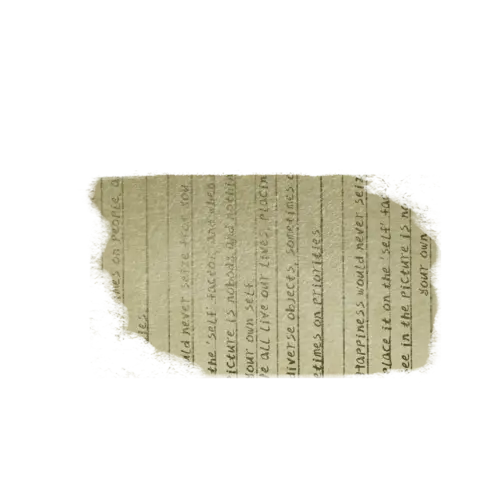 mes on people, a
les.
uld never seize from you.
the 'self' factor and when
icture is nobody and nothin
your own self.
e all live our lives, placin
diverse objects, sometimes o
etimes on priorities
Happiness would never seiz
place it on the 'self' fac
ee in the picture is no
your own